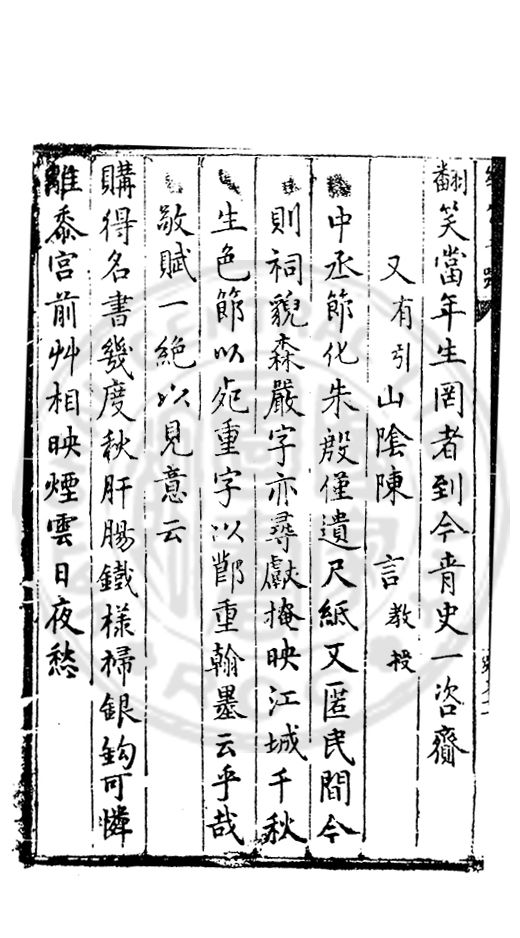 翻笑當年生罔者到今青史一咨齎
又有引山陰陳言教授
中丞節化朱殷僅遺尺紙又匿民間今
則祠貌森嚴字亦尋獻掩映江城千秋
生色節以宛重字以節重翰墨云乎哉
敬賦一絕以見意云
購得名書幾度秋肝腸鐵樣掃銀鈎可憐
離黍宮前艸相映煙雲日夜愁